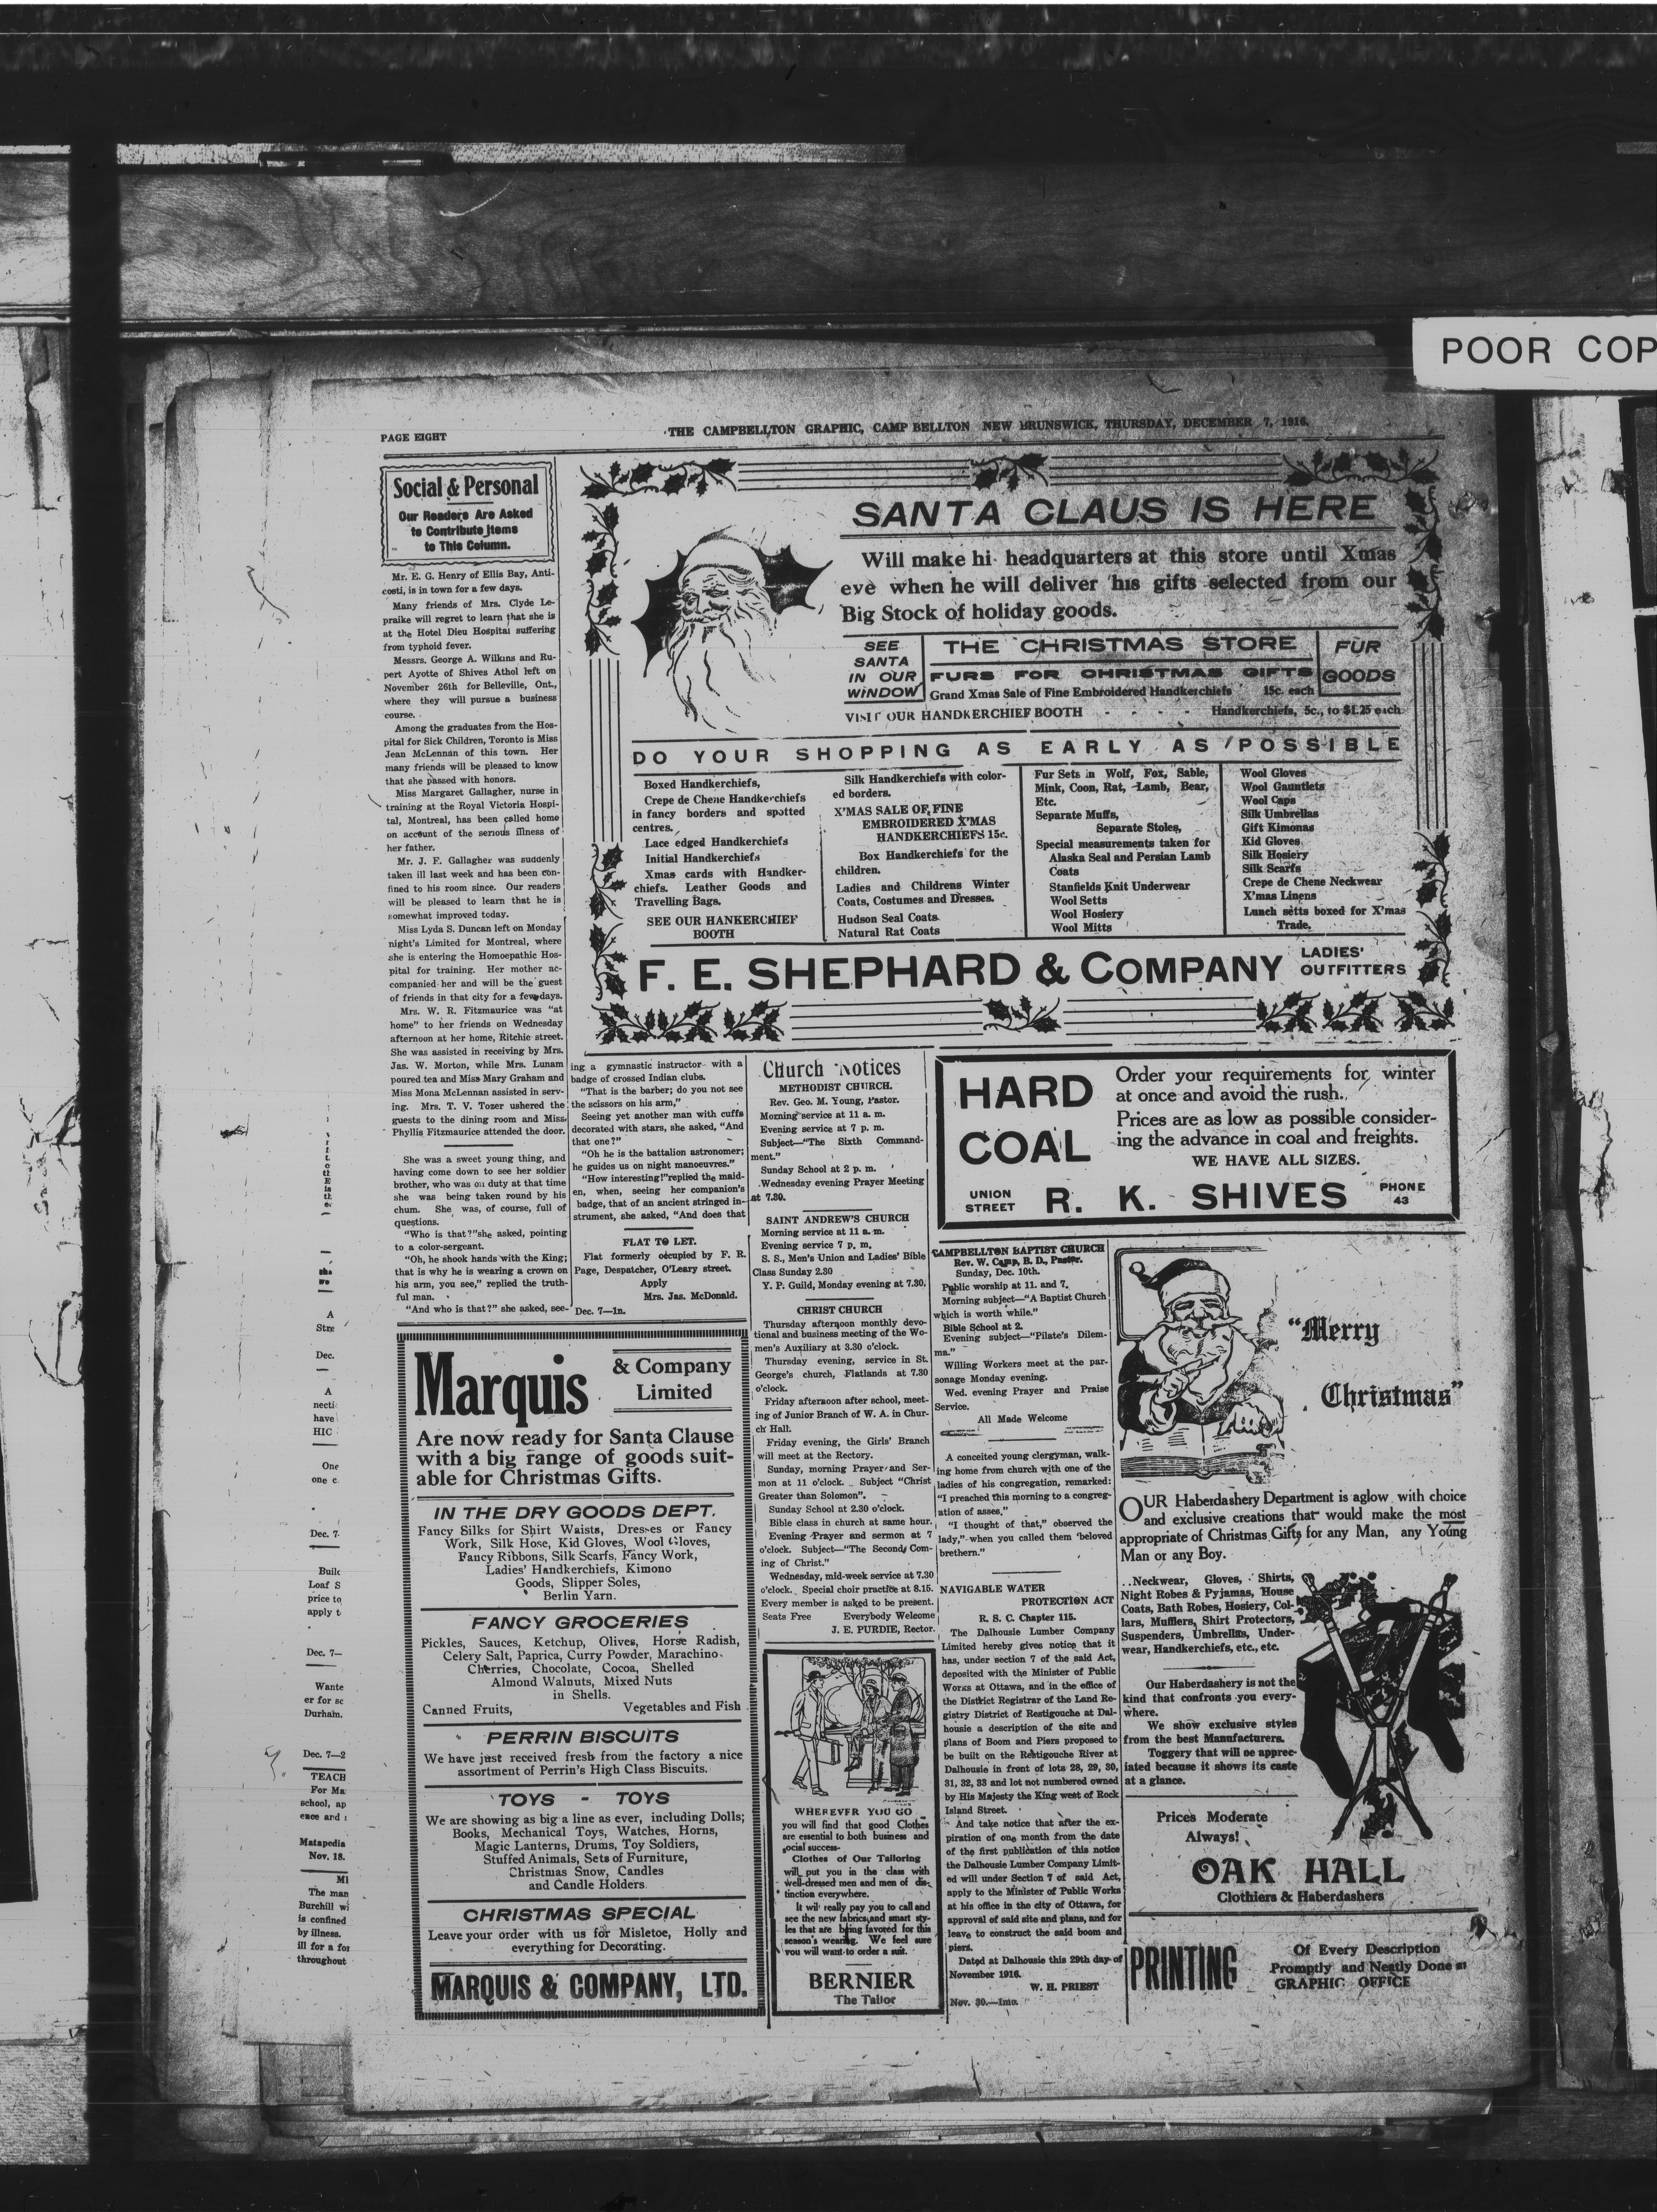 POOR COP
PAGE EIGHT
THE CAMPBELLTON GRAPHIC, CAMP BELLTON NEW BRUNSWICK, THURSDAY, DECEMBER 7, 1916.
Social & Personal
Our Readers Are Asked
to Contribute Items
to This Column.
Mr. E. G. Henry of Ellis Bay, Anti-
costi, is in town for a few days.
Many friends of Mrs. Clyde Le-
praike will regret to learn that she is
at the Hotel Dieu Hospital suffering
from typhoid fever.
Messrs. George A. Wilkins and Ru-
pert Ayotte of Shives Athol left on
November 26th for Belleville, Ont.,
where they will pursue a business
course.
Among the graduates from the Hos-
pital for Sick Children, Toronto is Miss
Jean McLennan of this town. Her
many friends will be pleased to know
that she passed with honors.
Miss Margaret Gallagher, nurse in
training at the Royal Victoria Hospi-
tal, Montreal, has been called home
on account of the serious illness of
her father.
Mr. J. F. Gallagher was suddenly
taken ill last week and has been con-
fined to his room since. Our readers
will be pleased to learn that he is
somewhat improved today.
Miss Lyda S. Duncan left on Monday
night's Limited for Montreal, where
she is entering the Homoepathic Hos-
pital for training. Her mother ac-
companied her and will be the guest
of friends in that city for a few days.
Mrs. W. R. Fitzmaurice was "at
home" to her friends on Wednesday
afternoon at her home, Ritchie street.
She was assisted in receiving by Mrs.
Jas. W. Morton, while Mrs. Lunam
poured tea and Miss Mary Graham and
Miss Mona McLennan assisted in serv-
ing. Mrs. T. V. Tozer ushered the
guests to the dining room and Miss
Phyllis Fitzmaurice attended the door.
She was a sweet young thing, and
having come down to see her soldier
brother, who was on duty at that time
she was being taken round by his
chum. She was, of course, full of
questions.
"Who is that?"she asked, pointing
to a color-sergeant.
"Oh, he shook hands with the King;
that is why he is wearing a crown on
his arm, you see," replied the truth-
ful man.
"And who is that?" she asked, see-
ing a gymnastic instructor with a
badge of crossed Indian clubs.
"That is the barber; do you not see
the scissors on his arm,"
Seeing yet another man with cuffs
decorated with stars, she asked, "And
that one?"
"Oh he is the battalion astronomer;
he guides us on night manoeuvres."
"How interesting!"replied the maid-
en, when, seeing her companion's
badge, that of an ancient stringed in-
strument, she asked, "And does that
FLAT TO LET.
Flat formerly occupied by F. R.
Page, Despatcher, O'Leary street.
Apply
Mrs. Jas. McDonald.
Dec. 7—1n.
SANTA CLAUS IS HERE
Will make hi headquarters at this store until Xmas
eve when he will deliver his gifts selected from our
Big Stock of holiday goods.
SEE
SANTA
IN OUR
WINDOW
THE CHRISTMAS STORE
FURS FOR CHRISTMAS GIFTS
Grand Xmas Sale of Fine Embroidered Handkerchiefs 15c. each
FUR
GOODS
VISIT OUR HANDKERCHIEF BOOTH - - - - Handkerchiefs, 5c., to $1.25 each
DO YOUR SHOPPING AS EARLY AS POSSIBLE
Boxed Handkerchiefs,
Crepe de Chene Handkerchiefs
in fancy borders and spotted
centres.
Lace edged Handkerchiefs
Initial Handkerchiefs
Xmas cards with Handker-
chiefs. Leather Goods and
Travelling Bags.
SEE OUR HANKERCHIEF
BOOTH
Silk Handkerchiefs with color-
ed borders.
X'MAS SALE OF FINE
EMBROIDERED X'MAS
HANDKERCHIEFS 15c.
Box Handkerchiefs for the
children.
Ladies and Childrens Winter
Coats, Costumes and Dresses.
Hudson Seal Coats
Natural Rat Coats
Fur Sets in Wolf, Fox, Sable,
Mink, Coon, Rat, Lamb, Bear,
Etc.
Separate Muffs,
Separate Stoles,
Special measurements taken for
Alaska Seal and Persian Lamb
Coats
Stanfields Knit Underwear
Wool Setts
Wool Hosiery
Wool Mitts
Wool Gloves
Wool Gauntlets
Wool Caps
Silk Umbrellas
Gift Kimonas
Kid Gloves
Silk Hosiery
Silk Scarfs
Crepe de Chene Neckwear
X'mas Linens
Lunch setts boxed for X'mas
Trade,
F. E. SHEPHARD & COMPANY
LADIES'
OUTFITTERS
Church Notices
METHODIST CHURCH.
Rev. Geo. M. Young, Pastor.
Morning service at 11 a. m.
Evening service at 7 p. m.
Subject—"The Sixth Command-
ment."
Sunday School at 2 p. m.
Wednesday evening Prayer Meeting
at 7.30.
SAINT ANDREW'S CHURCH
Morning service at 11 a. m.
Evening service 7 p. m.
S. S., Men's Union and Ladies' Bible
Class Sunday 2.30
Y. P. Guild, Monday evening at 7.30.
CHRIST CHURCH
Thursday afternoon monthly devo-
tional and business meeting of the Wo-
men's Auxiliary at 3.30 o'clock.
Thursday evening, service in St.
George's church, Flatlands at 7.30
o'clock.
Friday afternoon after school, meet-
ing of Junior Branch of W. A. in Chur-
ch Hall.
Friday evening, the Girls' Branch
will meet at the Rectory.
Sunday, morning Prayer and Ser-
mon at 11 o'clock. Subject "Christ
Greater than Solomon".
Sunday School at 2.30 o'clock.
Bible class in church at same hour.
Evening Prayer and sermon at 7
o'clock. Subject—"The Second Com-
ing of Christ."
Wednesday, mid-week service at 7.30
o'clock. Special choir practice at 8.15.
Every member is asked to be present.
Seats Free Everybody Welcome
J. E. PURDIE, Rector.
HARD
COAL
Order your requirements for winter
at once and avoid the rush.
Prices are as low as possible consider-
ing the advance in coal and freights.
WE HAVE ALL SIZES.
UNION
STREET
R. K. SHIVES
PHONE
43
CAMPBELLTON BAPTIST CHURCH
Rev. W. Camp, B. D., Pastor.
Sunday, Dec. 10th.
Public worship at 11. and 7.
Morning subject—"A Baptist Church
which is worth while."
Bible School at 2.
Evening subject—"Pilate's Dilem-
ma."
Willing Workers meet at the par-
sonage Monday evening.
Wed. evening Prayer and Praise
Service.
All Made Welcome
A conceited young clergyman, walk-
ing home from church with one of the
ladies of his congregation, remarked:
"I preached this morning to a congreg-
ation of asses."
"I thought of that," observed the
lady," when you called them 'beloved
brethern."
NAVIGABLE WATER
PROTECTION ACT
R. S. C. Chapter 115.
The Dalhousie Lumber Company
Limited hereby gives notice that it
has, under section 7 of the said Act,
deposited with the Minister of Public
Works at Ottawa, and in the office of
the District Registrar of the Land Re-
gistry District of Restigouche at Dal-
housie a description of the site and
plans of Boom and Piers proposed to
be built on the Restigouche River at
Dalhousie in front of lots 28, 29, 30,
31, 32, 33 and lot not numbered owned
by His Majesty the King west of Rock
Island Street.
And take notice that after the ex-
piration of one month from the date
of the first publication of this notice
the Dalhousie Lumber Company Limit-
ed will under Section 7 of said Act,
apply to the Minister of Public Works
at his office in the city of Ottawa, for
approval of said site and plans, and for
leave to construct the said boom and
piers.
Dated at Dalhousie this 29th day of
November 1916.
W. H. PRIEST
Nov. 30.—1mo.
Marquis
& Company
Limited
Are now ready for Santa Clause
with a big range of goods suit-
able for Christmas Gifts.
IN THE DRY GOODS DEPT.
Fancy Silks for Shirt Waists, Dresses or Fancy
Work, Silk Hose, Kid Gloves, Wool Gloves,
Fancy Ribbons, Silk Scarfs, Fancy Work,
Ladies' Handkerchiefs, Kimono
Goods, Slipper Soles,
Berlin Yarn.
FANCY GROCERIES
Pickles, Sauces, Ketchup, Olives, Horse Radish,
Celery Salt, Paprica, Curry Powder, Marachino
Cherries, Chocolate, Cocoa, Shelled
Almond Walnuts, Mixed Nuts
in Shells.
Canned Fruits, Vegetables and Fish
PERRIN BISCUITS
We have just received fresh from the factory a nice
assortment of Perrin's High Class Biscuits.
TOYS - TOYS
We are showing as big a line as ever, including Dolls;
Books, Mechanical Toys, Watches, Horns,
Magic Lanterns, Drums, Toy Soldiers,
Stuffed Animals, Sets of Furniture,
Christmas Snow, Candles
and Candle Holders.
CHRISTMAS SPECIAL
Leave your order with us for Misletoe, Holly and
everything for Decorating.
MARQUIS & COMPANY, LTD.
WHEREVER YOU GO
you will find that good Clothes
are essential to both business and
social success-
Clothes of Our Tailoring
will put you in the class with
well-dressed men and men of dis-
tinction everywhere.
It will really pay you to call and
see the new fabrics and smart sty-
les that are being favored for this
season's wearing. We feel sure
you will want to order a suit.
BERNIER
The Tailor
"Merry
Christmas"
OUR Haberdashery Department is aglow with choice
and exclusive creations that would make the most
appropriate of Christmas Gifts for any Man, any Young
Man or any Boy.
..Neckwear, Gloves, Shirts,
Night Robes & Pyjamas, House
Coats, Bath Robes, Hosiery, Col-
lars, Mufflers, Shirt Protectors,
Suspenders, Umbrellas, Under-
wear, Handkerchiefs, etc., etc.
Our Haberdashery is not the
kind that confronts you every-
where.
We show exclusive styles
from the best Manufacturers.
Toggery that will be apprec-
iated because it shows its caste
at a glance.
Prices Moderate
Always!
OAK HALL
Clothiers & Haberdashers
PRINTING
Of Every Description
Promptly and Neatly Done at
GRAPHIC OFFICE
A
Stre
Dec.
A
necti
have
HIC
One
one c
Dec. 7
Build
Loaf S
price to
apply t
Dec. 7—
Wante
er for sc
Durham.
Dec. 7—2
TEACH
For Ma
school, ap
ence and
Matapedia
Nov. 18.
MI
The man
Burchill wi
is confined
by illness.
ill for a for
throughout